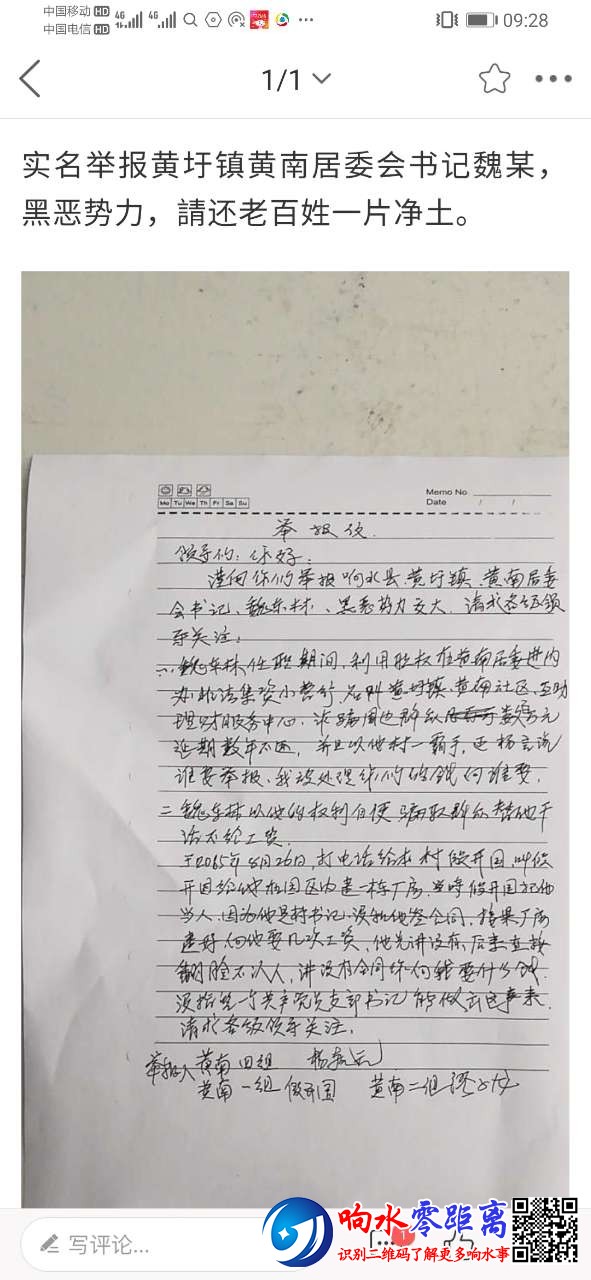 中国移动 HD 4G 4G 09:28
中国电信 HD
1/1
实名举报黄圩镇黄南居委会书记魏某，
黑恶势力，請还老百姓一片净土。
Memo No
Mo Tu We Th Fr Sa Su
Date / /
举报信
领导们：你好：
谨向你们举报响水县黄圩镇黄南居委
会书记、魏东林、黑恶势力交大，请求各级领
导关注：
一、魏东林任职期间，利用职权在黄南居委进内
办非法集资小银行，名叫黄圩镇、黄南社区、互助
理财服务中心，群众元
延期数年不还，并且以他村一霸手，还扬言说
谁要举报、我被处理你们的钱向谁要。
二、魏东林以他的权利自便骗取群众替他干
活不给工资。
于2065年8月26日，打电话给本村假开国，叫假
开国给他在园区内建一栋厂房，当时假开国把他
当人，因为他是村书记，没和他签合同，结果厂房
建好，向他要几次工资，他先讲没有，后来直接
翻脸不认人，讲没有合同你向我要什么钱
没想是一个共产党员支部书记能做出这事来，
请求各级领导关注。
举报人 黄南四组
黄南一组 假开国 黄南二组
写评论...
1
响水零距离
识别二维码了解更多响水事